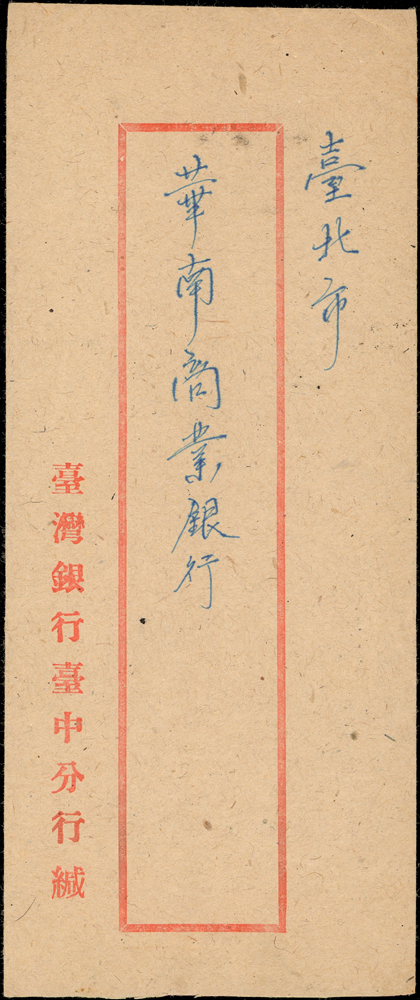 臺北市
華南商業銀行
臺灣銀行臺中分行緘